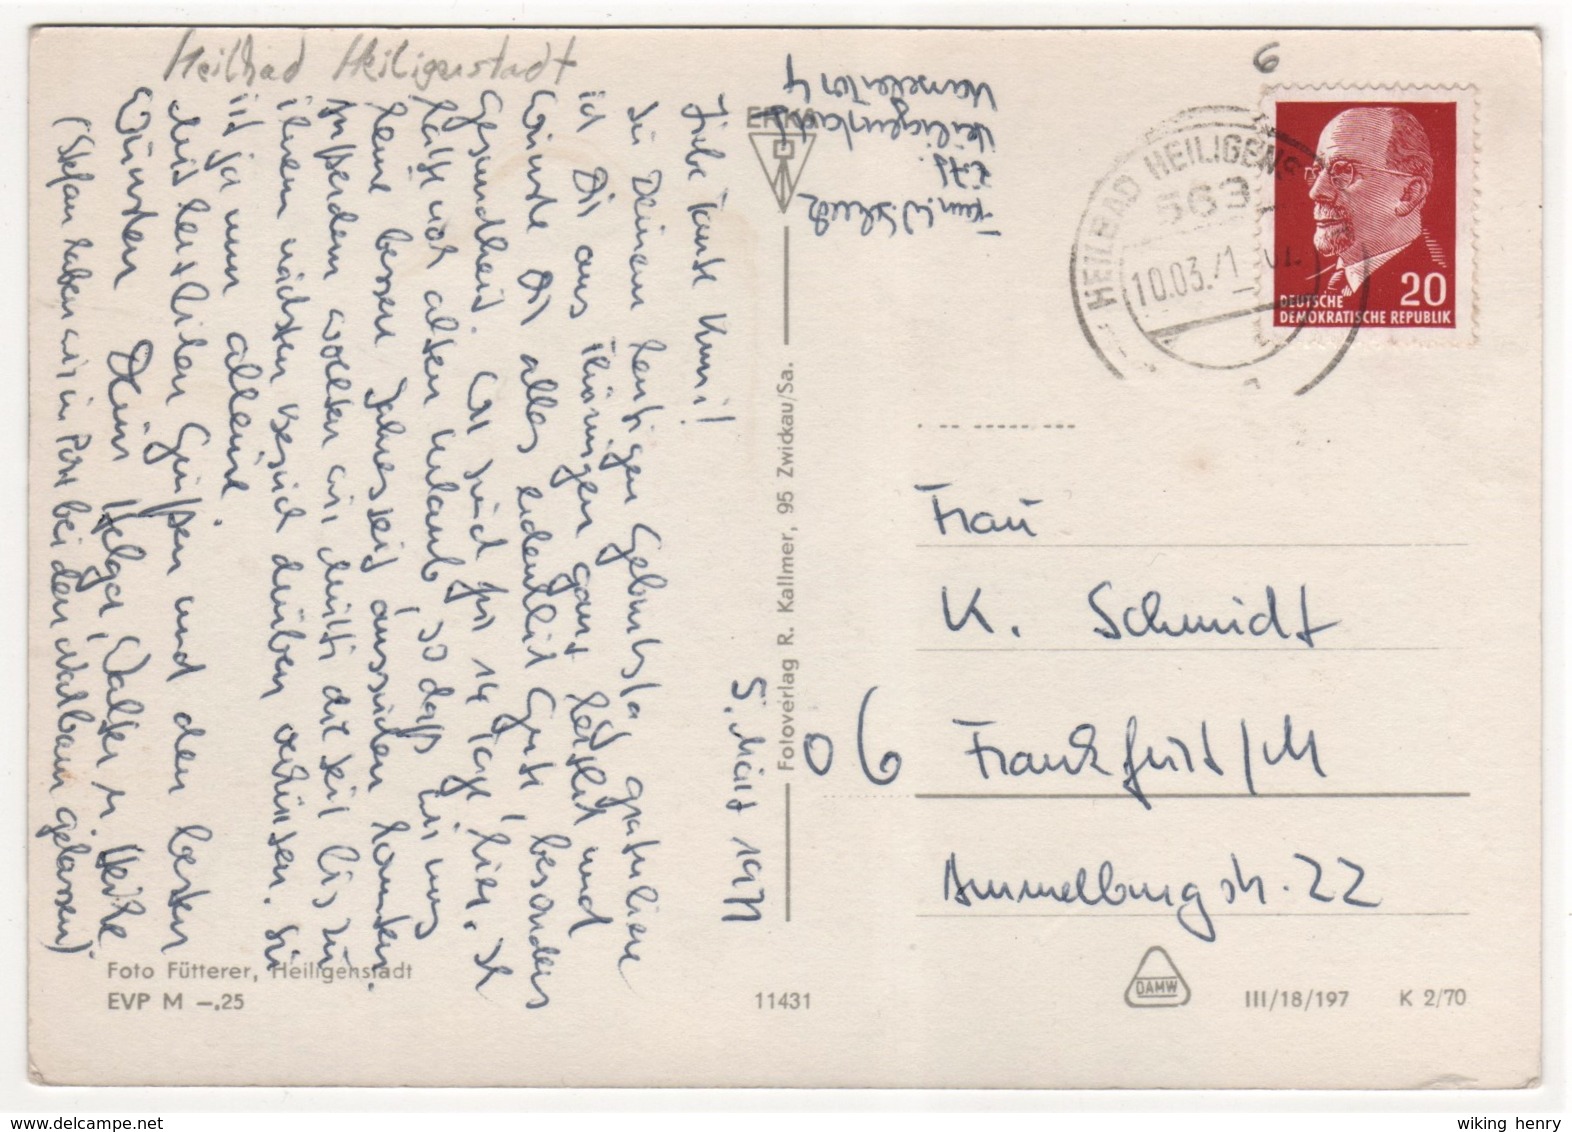 Heilbad Heiligenstadt
Fam. W.
Heiligenstadt
Kasseler Tor 4
5. März 1971
Liebe Tante Kuni!
Zu Deinem heutigen Geburtstag gratuliere
ich Dir aus Thüringen ganz herzlich und
wünsche Dir alles erdenklich Gute, besonders
Gesundheit. Wir sind für 14 Tage hier. Ich
hatte noch alten Urlaub, so daß wir uns
keine bessere Jahreszeit aussuchen konnten.
Außerdem wollten wir Mutti die Zeit bis zu
ihrem nächsten Besuch drüben verkürzen. Sie
ist ja nun alleine.
Mit herzlichen Grüßen und den besten
Wünschen Deine Helga, Walter u. Heike
(Stefan haben wir in Pirk bei den Nachbarn gelassen)
ERKA
Fotoverlag R. Kallmer, 95 Zwickau/Sa.
6
HEILBAD HEILIGENS
563
10.03.71
20
DEUTSCHE
DEMOKRATISCHE REPUBLIK
Frau
K. Schmidt
06 Frankfurt/M
Ammelburgstr. 22
Foto Fütterer, Heiligenstadt
EVP M –.25
11431
DAMW
III/18/197 K 2/70
wiking henry